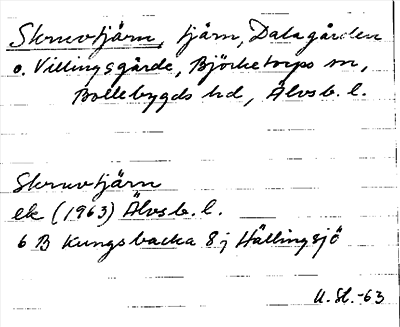 Skruvtjärn, tjärn, Dalagården
o. Villingsgärde, Björketorps sn,
Bollebygds hd, Älvsb. l.
Skruvtjärn
ek (1963) Älvsb. l.
6 B Kungsbacka 8 j Hällingsjö
U. Sl. -63